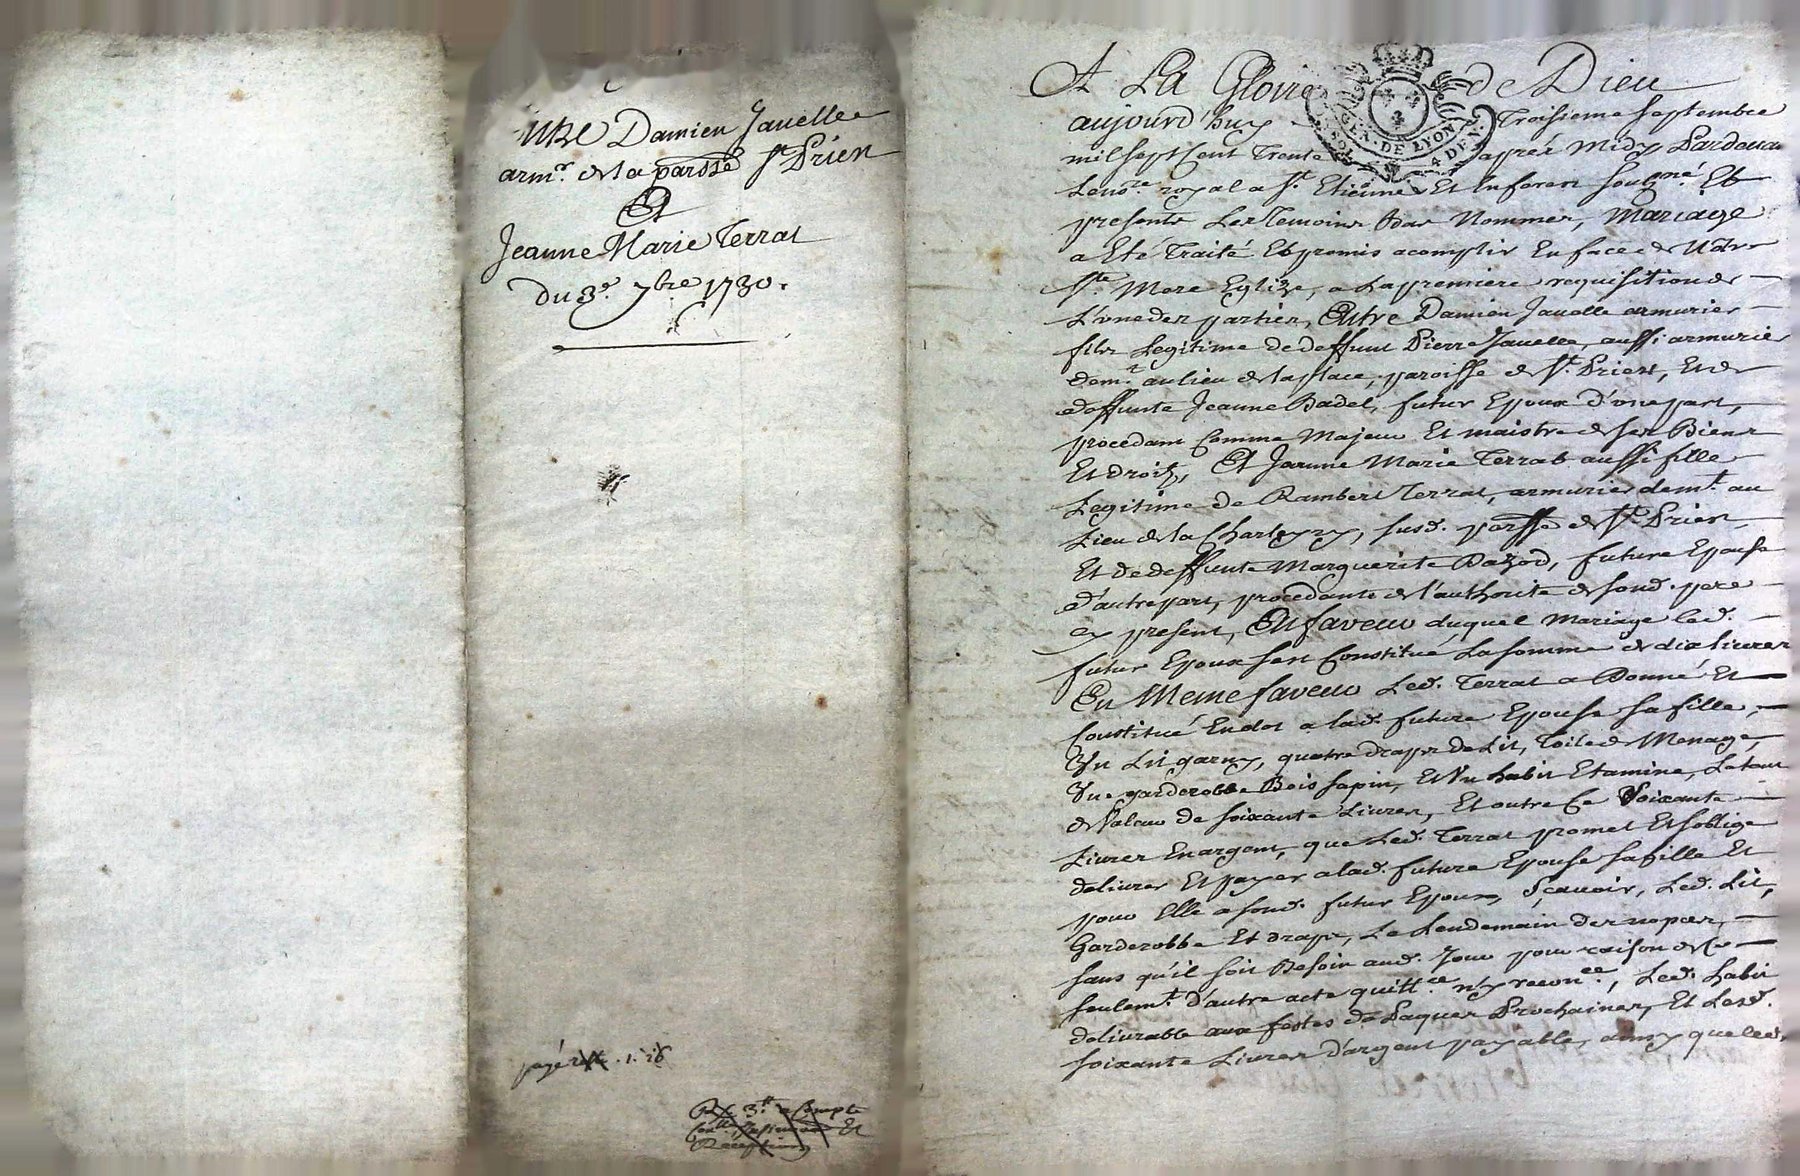 Mge Damien Javelle
armr. de la parosse St Priest
Et
Jeanne Marie Terrat
Du 3e. 7bre 1730.
payé 1. 16
3tt a Compte
Et
Reception
A La Gloire de Dieu
aujourd'huy Troisieme septembre
GEN. DE LYON
4 DEN.
mil sept Cent Trente apres Midy Pardevant
Le nore royal a St. Etienne Et en forest sousné. Et
presents Les Temoins Bas Nommes, Mariage
a Eté Traité Et promis acomplir En face de Notre
Ste Mere Eglize, a La premiere requisition de
L'une des parties, Entre Damien Javelle armurier
fils Legitime de deffunt Pierre Javelle, aussi armurier
demt. au lieu de la place, paroisse de St. Priest, Et de
deffunte Jeanne Badel, futur Epoux d'une part,
procedant Comme Majeur Et maistre de ses Biens
Et droits, Et Jeanne Marie Terrat aussi fille
Legitime de Rambert Terrat, armurier demt. au
Lieu de la Charleyry, susd. parsse de St. Priest
Et de deffunte Marguerite Bazod, future Epouse
d'autre part, procedante de l'authorité de sond. pere
cy present, En faveur duquel Mariage led.
futur Epoux s'est Constitué La somme de dix livres
En Meme faveur Led. Terrat a Donné Et
Constitué En dot a lad. future Epouse sa fille,
Un Lit garny, quatre draps de Lit, Toile de Menage,
Une garderobbe Bois sapin, Et Un habit Etamine, Le tout
de Valeur de soixante Livres, Et outre Ce Soixante
Livres En argent, que Led. Terrat promet Et s'oblige
delivrer Et payer a lad. future Epouse sa fille Et
pour Elle a sond. futur Epoux, Sçavoir, Led. Lit,
Garderobbe Et draps, Le Lendemain des nopces,
sans qu'il soit Besoin aud. Jour pour raison de Ce
seulemt. d'autre acte quittce ny reconce, Led. habit
delivrable aux festes de Paques Prochaines, Et Lesd.
soixante Livres d'argent payable, ainsy que led.